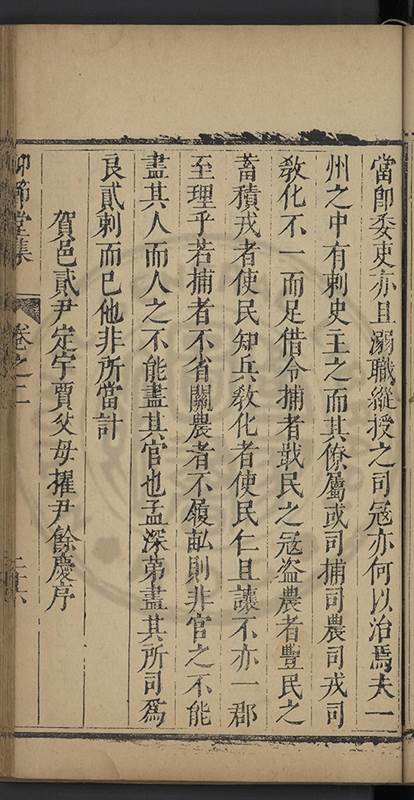 當即委吏亦且溺職縱授之司冦亦何以治焉夫一
州之中有刺史主之而其僚屬或司捕司農司戎司
敎化不一而足借令捕者戢民之冦盗農者豐民之
蓄積戎者使民知兵敎化者使民仁且讓不亦一郡
至理乎若捕者不省關農者不履畆則非官之不能
盡其人而人之不能盡其官也孟深第盡其所司爲
良貳刺而已他非所當計
賀邑貳尹定宇賈父母擢尹餘慶序
仰節堂集
卷之二
二六